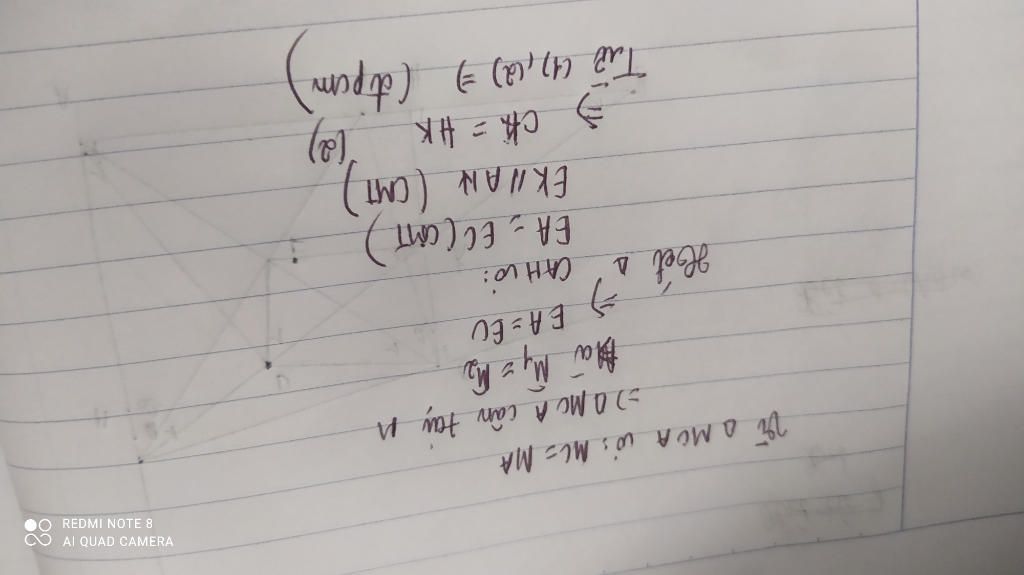 Vì Δ MCA có: MC = MA
=> Δ MCA cân tại M
Mà M̂₁ = M̂₂
=> EA = EC
Xét Δ CAH có:
EA = EC (CMT)
EK // AH (CMT)
=> CK = HK (2)
Từ (1), (2) => (đpcm)
REDMI NOTE 8
AI QUAD CAMERA